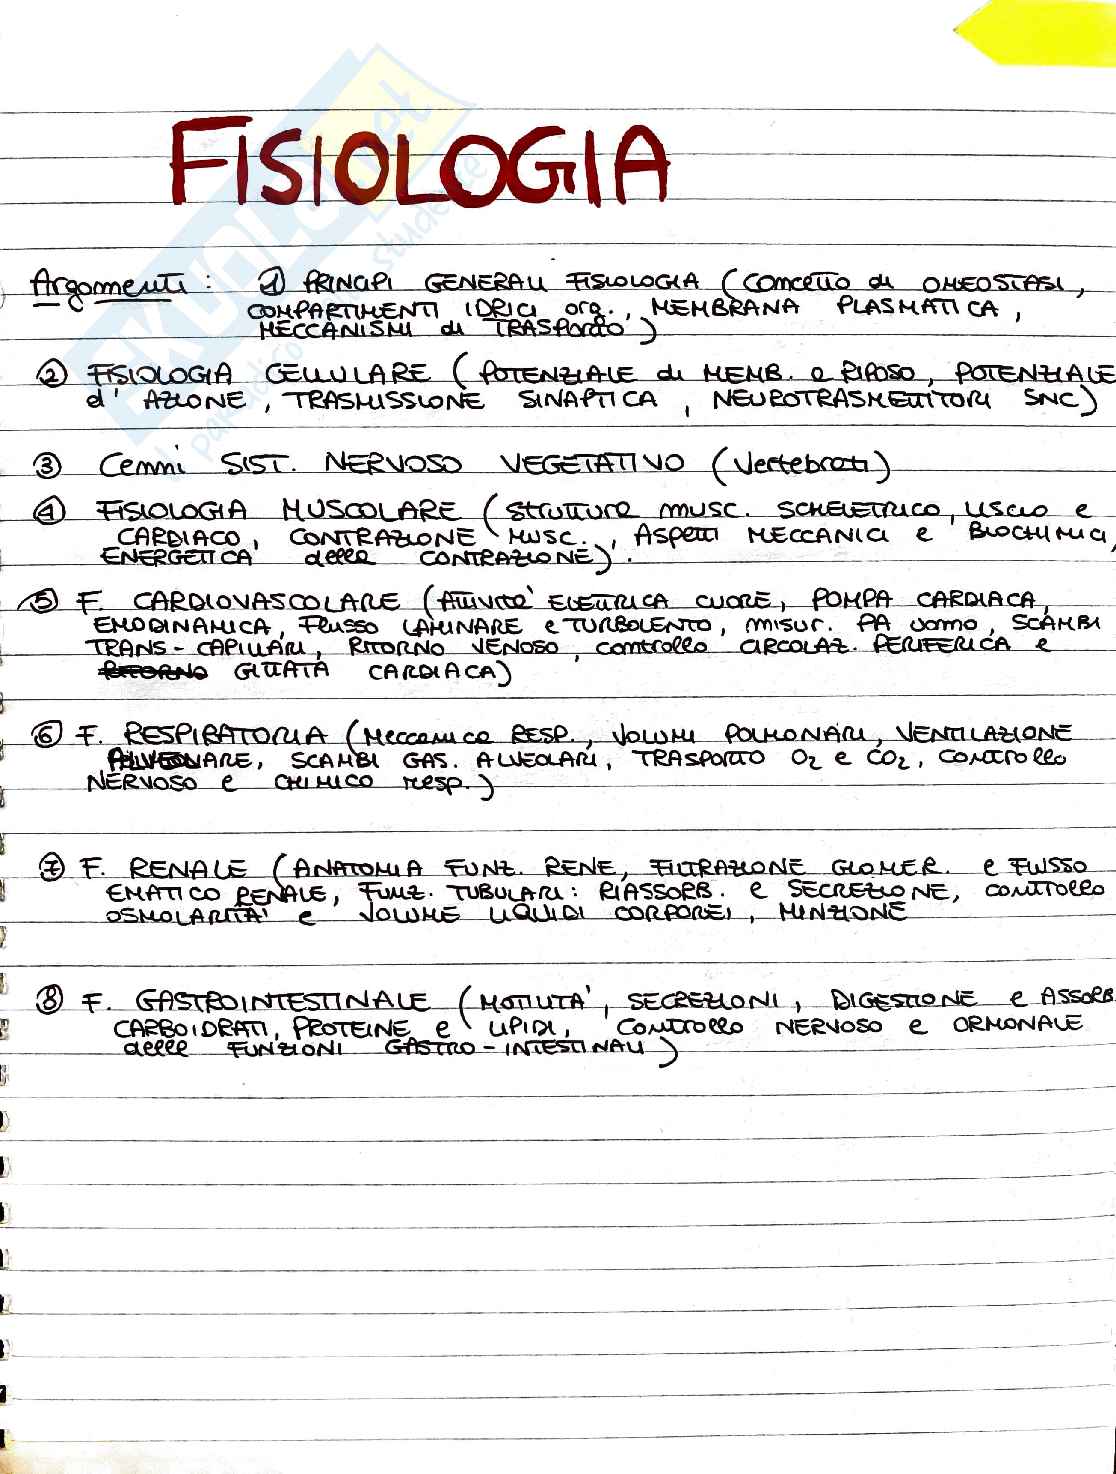 FISIOLOGIA
Argomenti : ① PRINCIPI GENERALI FISIOLOGIA (concetto di OMEOSTASI,
COMPARTIMENTI IDRICI org., MEMBRANA PLASMATICA,
MECCANISMI di TRASPORTO)
② FISIOLOGIA CELLULARE (POTENZIALE di MEMB. e RIPOSO, POTENZIALE
d'AZIONE, TRASMISSIONE SINAPTICA, NEUROTRASMETTITORI SNC)
③ Cenni SIST. NERVOSO VEGETATIVO (Vertebrati)
④ FISIOLOGIA MUSCOLARE (struttura musc. SCHELETRICO, LISCIO e
CARDIACO, CONTRAZIONE MUSC., Aspetti MECCANICI e BIOCHIMICI,
ENERGETICA della CONTRAZIONE).
⑤ F. CARDIOVASCOLARE (Attività ELETTRICA CUORE, POMPA CARDIACA,
EMODINAMICA, Flusso LAMINARE e TURBOLENTO, misur. PA uomo, SCAMBI
TRANS-CAPILLARI, RITORNO VENOSO, controllo CIRCOLAZ. PERIFERICA e
RITORNO GITTATA CARDIACA)
⑥ F. RESPIRATORIA (Meccanica RESP., VOLUMI POLMONARI, VENTILAZIONE
ALVEOLARE, SCAMBI GAS. ALVEOLARI, TRASPORTO O₂ e CO₂, CONTROLLO
NERVOSO e CHIMICO resp.)
⑦ F. RENALE (ANATOMIA FUNZ. RENE, FILTRAZIONE GLOMER. e FLUSSO
EMATICO RENALE, Funz. TUBULARI: RIASSORB. e SECREZIONE, controllo
OSMOLARITA' e VOLUME LIQUIDI CORPOREI, MINZIONE
⑧ F. GASTROINTESTINALE (MOTILITA', SECREZIONI, DIGESTIONE e ASSORB
CARBOIDRATI, PROTEINE e LIPIDI, CONTROLLO NERVOSO e ORMONALE
delle FUNZIONI GASTRO-INTESTINALI)